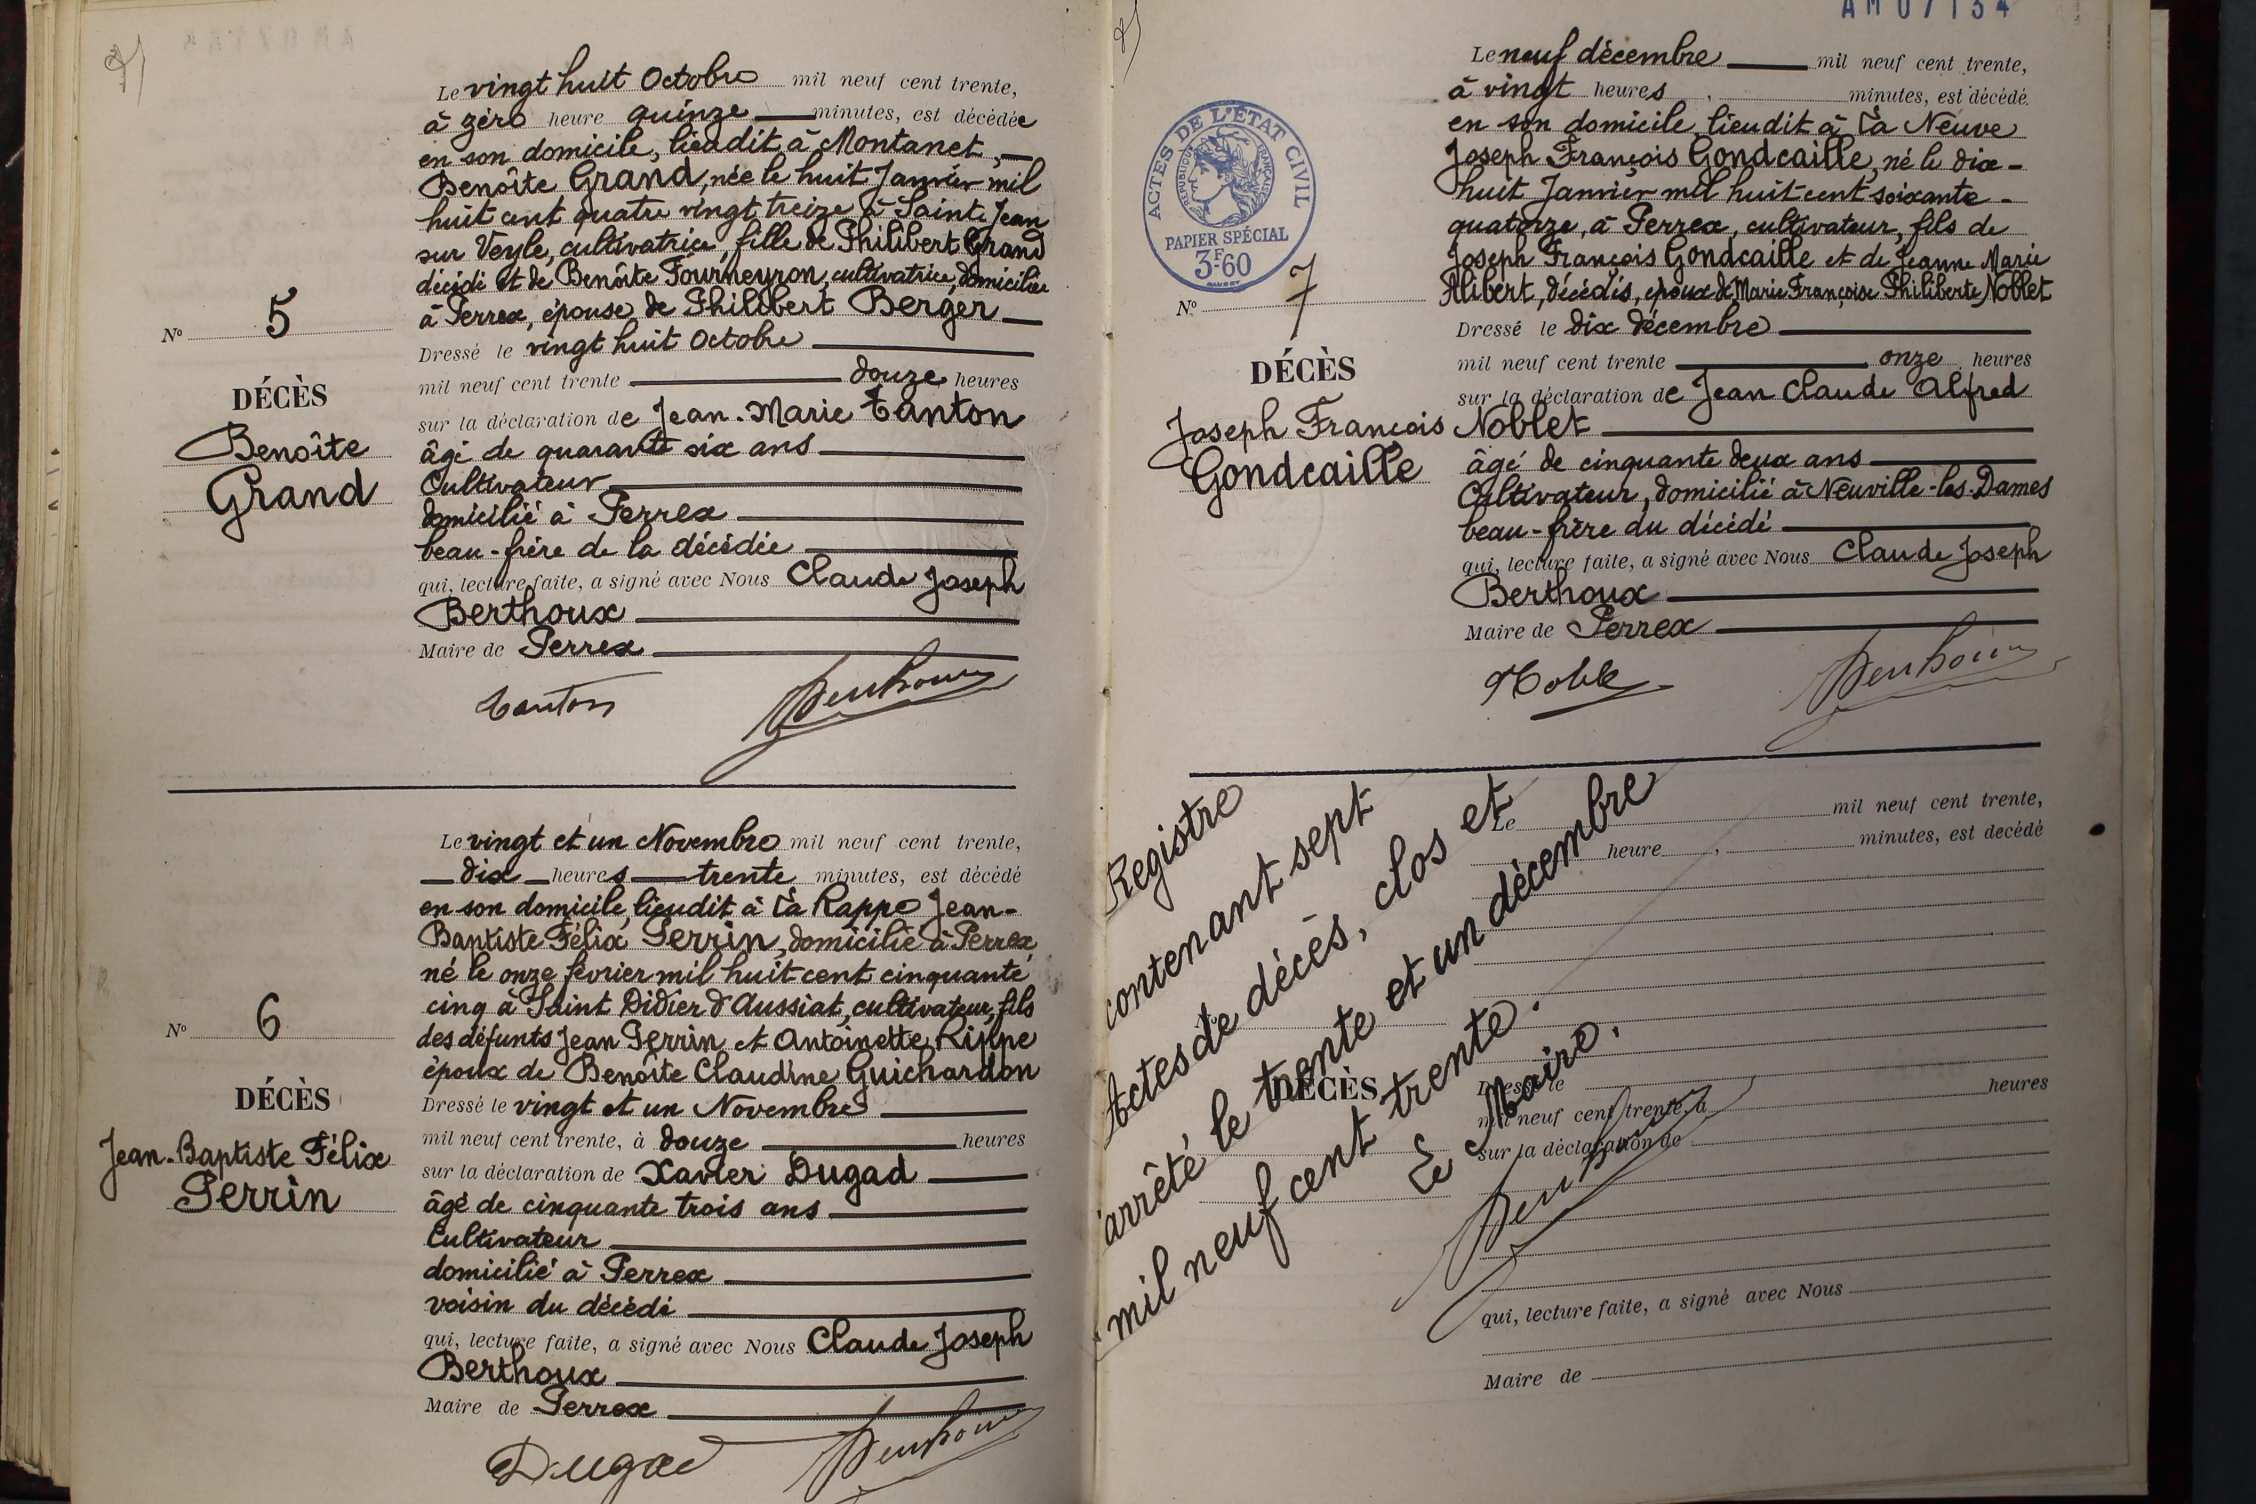 Le vingt huit Octobre mil neuf cent trente,
à zéro heure quinze minutes, est décédée
en son domicile, lieudit à Montanet,
Benoîte Grand, née le huit Janvier mil
huit cent quatre vingt treize à Saint Jean
sur Veyle, cultivatrice, fille de Philibert Grand
décédé et de Benoîte Fourneyron, cultivatrice, domiciliée
à Perrex, épouse de Philibert Berger
Dressé le vingt huit Octobre
mil neuf cent trente douze heures
sur la déclaration de Jean-Marie Tanton
âgé de quarante six ans
Cultivateur
domicilié à Perrex
beau-frère de la décédée
qui, lecture faite, a signé avec Nous Claude Joseph
Berthoux
Maire de Perrex
Tanton
N° 5
DÉCÈS
Benoîte
Grand
Le vingt et un Novembre mil neuf cent trente,
dix heures trente minutes, est décédé
en son domicile, lieudit à La Rappe Jean-
Baptiste Félix Perrin, domicilié à Perrex,
né le onze février mil huit cent cinquante
cinq à Saint Didier d'Aussiat, cultivateur, fils
des défunts Jean Perrin et Antoinette Rippe
époux de Benoîte Claudine Guichardon
Dressé le vingt et un Novembre
mil neuf cent trente, à douze heures
sur la déclaration de Xavier Dugad
âgé de cinquante trois ans
Cultivateur
domicilié à Perrex
voisin du décédé
qui, lecture faite, a signé avec Nous Claude Joseph
Berthoux
Maire de Perrex
Dugad
N° 6
DÉCÈS
Jean-Baptiste Félix
Perrin
AM07134
Le neuf décembre mil neuf cent trente,
à vingt heures , minutes, est décédé
en son domicile, lieudit à La Neuve
Joseph François Gondcaille, né le dix-
huit Janvier mil huit cent soixante-
quatorze, à Perrex, cultivateur, fils de
Joseph François Gondcaille et de Jeanne Marie
Alibert, décédés, époux de Marie Françoise Philiberte Noblet
Dressé le dix décembre
mil neuf cent trente onze heures
sur la déclaration de Jean Claude Alfred
Noblet
âgé de cinquante deux ans
Cultivateur, domicilié à Neuville-les-Dames
beau-frère du décédé
qui, lecture faite, a signé avec Nous Claude Joseph
Berthoux
Maire de Perrex
ACTES DE L'ÉTAT CIVIL
RÉPUBLIQUE FRANÇAISE
PAPIER SPÉCIAL
3F.60
N° 7
DÉCÈS
Joseph François
Gondcaille
Registre
contenant sept
Actes de décès, clos et
arrêté le trente et un décembre
mil neuf cent trente.
Le Maire.
DÉCÈS
Le mil neuf cent trente,
heure , minutes, est décédé
Dressé le heures
mil neuf cent trente, à
sur la déclaration de
qui, lecture faite, a signé avec Nous
Maire de